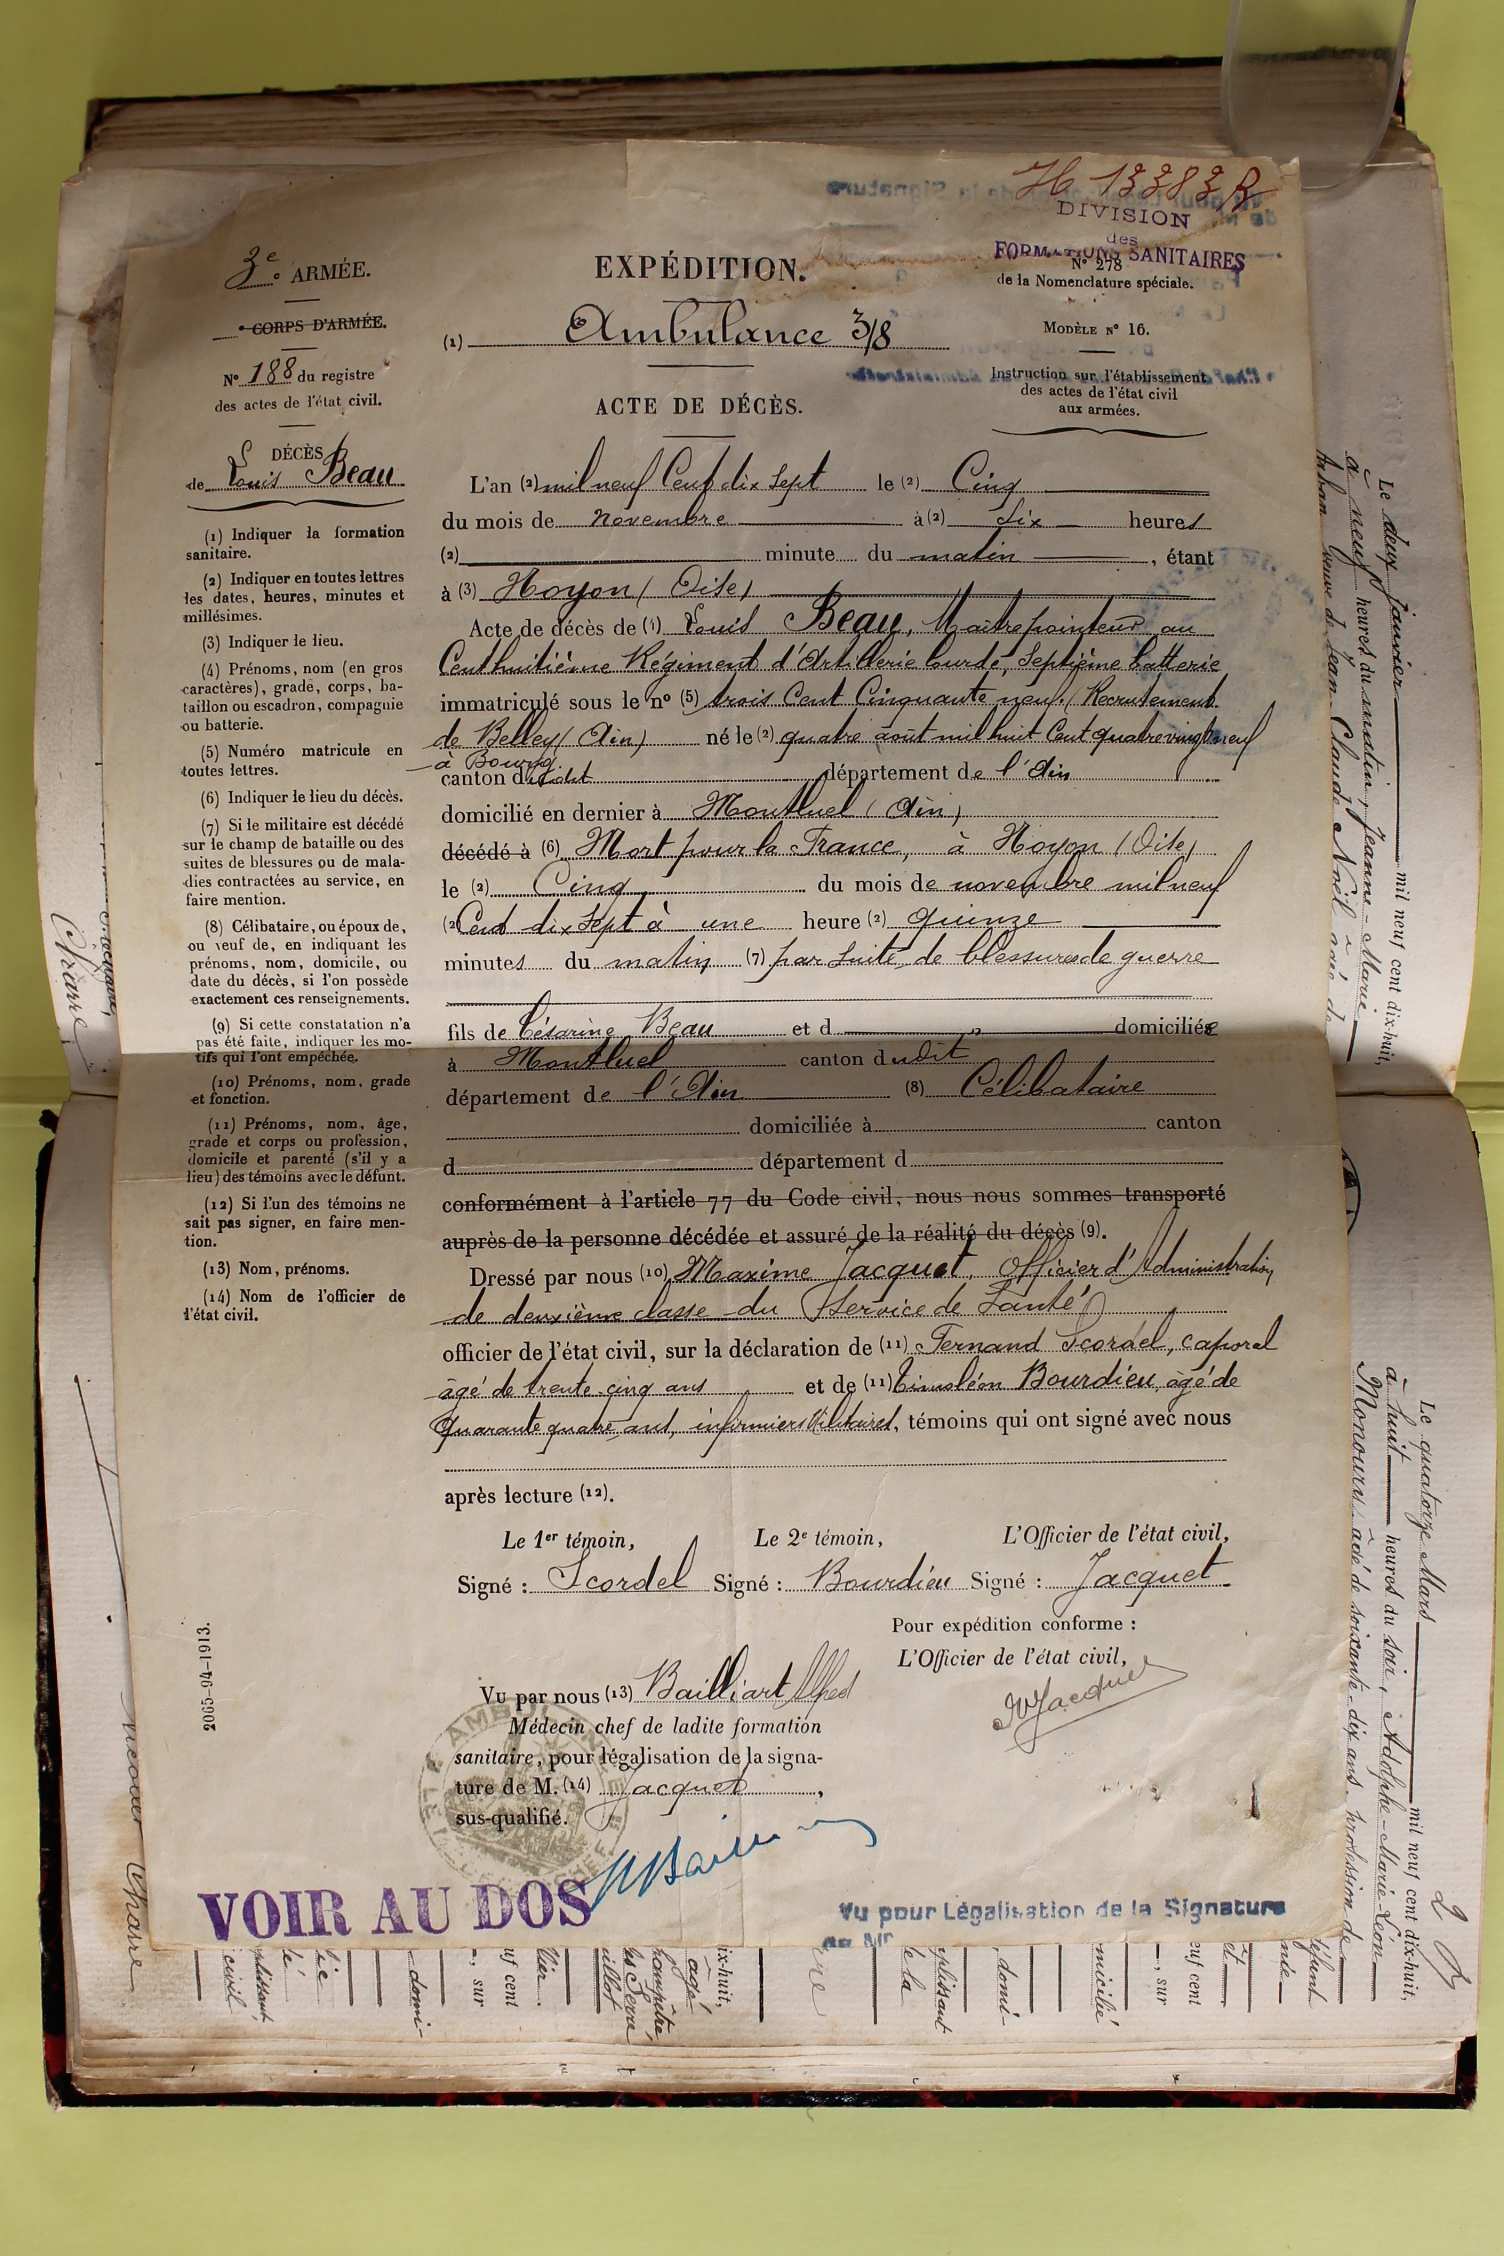 H 13383 R
DIVISION
des
FORMATIONS SANITAIRES
3e ARMÉE.
CORPS D'ARMÉE.
N° 188 du registre
des actes de l'état civil.
DÉCÈS
de Louis Beau
EXPÉDITION.
(1) Ambulance 3/8
ACTE DE DÉCÈS.
N° 278
de la Nomenclature spéciale.
MODÈLE N° 16.
Instruction sur l'établissement
des actes de l'état civil
aux armées.
(1) Indiquer la formation
sanitaire.
(2) Indiquer en toutes lettres
les dates, heures, minutes et
millésimes.
(3) Indiquer le lieu.
(4) Prénoms, nom (en gros
caractères), grade, corps, ba-
taillon ou escadron, compagnie
ou batterie.
(5) Numéro matricule en
toutes lettres.
(6) Indiquer le lieu du décès.
(7) Si le militaire est décédé
sur le champ de bataille ou des
suites de blessures ou de mala-
dies contractées au service, en
faire mention.
(8) Célibataire, ou époux de,
ou veuf de, en indiquant les
prénoms, nom, domicile, ou
date du décès, si l'on possède
exactement ces renseignements.
(9) Si cette constatation n'a
pas été faite, indiquer les mo-
tifs qui l'ont empêchée.
(10) Prénoms, nom, grade
et fonction.
(11) Prénoms, nom, âge,
grade et corps ou profession,
domicile et parenté (s'il y a
lieu) des témoins avec le défunt.
(12) Si l'un des témoins ne
sait pas signer, en faire men-
tion.
(13) Nom, prénoms.
(14) Nom de l'officier de
l'état civil.
2065-94-1913.
L'an (2) mil neuf Cent dix sept le (2) Cinq
du mois de novembre à (2) dix heures
(2) minute du matin, étant
à (3) Noyon (Oise)
Acte de décès de (4) Louis Beau, Maître pointeur au
Cent huitième Régiment d'Artillerie lourde, Septième batterie
immatriculé sous le n° (5) trois Cent Cinquante neuf. (Recrutement
de Belley (Ain) né le (2) quatre août mil huit Cent quatre vingt neuf
à Bourg
canton dudit département de l'Ain
domicilié en dernier à Montluel (Ain)
décédé à (6) Mort pour la France, à Noyon (Oise)
le (2) Cinq du mois de novembre mil neuf
(2) Cent dix sept à une heure (2) quinze
minutes du matin (7) par suite de blessures de guerre
fils de Césarine Beau et d „ domiciliée
à Montluel canton dudit
département de l'Ain (8) Célibataire
domiciliée à canton
d département d
conformément à l'article 77 du Code civil, nous nous sommes transporté
auprès de la personne décédée et assuré de la réalité du décès (9).
Dressé par nous (10) Maxime Jacquet, Officier d'Administration
de deuxième classe du Service de Santé
officier de l'état civil, sur la déclaration de (11) Fernand Scordel, caporal
âgé de trente cinq ans et de (11) Timoléon Bourdieu, âgé de
quarante quatre ans, infirmiers Militaires, témoins qui ont signé avec nous
après lecture (12).
Le 1er témoin, Le 2e témoin, L'Officier de l'état civil,
Signé : Scordel Signé : Bourdieu Signé : Jacquet
Pour expédition conforme :
L'Officier de l'état civil,
MJacquet
Vu par nous (13) Bailliart Alfred
Médecin chef de ladite formation
sanitaire, pour légalisation de la signa-
ture de M. (14) Jacquet,
sus-qualifié.
VOIR AU DOS
Vu pour Légalisation de la Signature
Le deux janvier mil neuf cent dix-huit,
à neuf heures du matin, Jeanne-Marie
veuve de Jean-Claude Noël
Le quatorze Mars mil neuf cent dix-huit,
à huit heures du soir, Adolphe-Marie-Léon
Monoury, âgé de soixante-dix ans, profession de
Charre